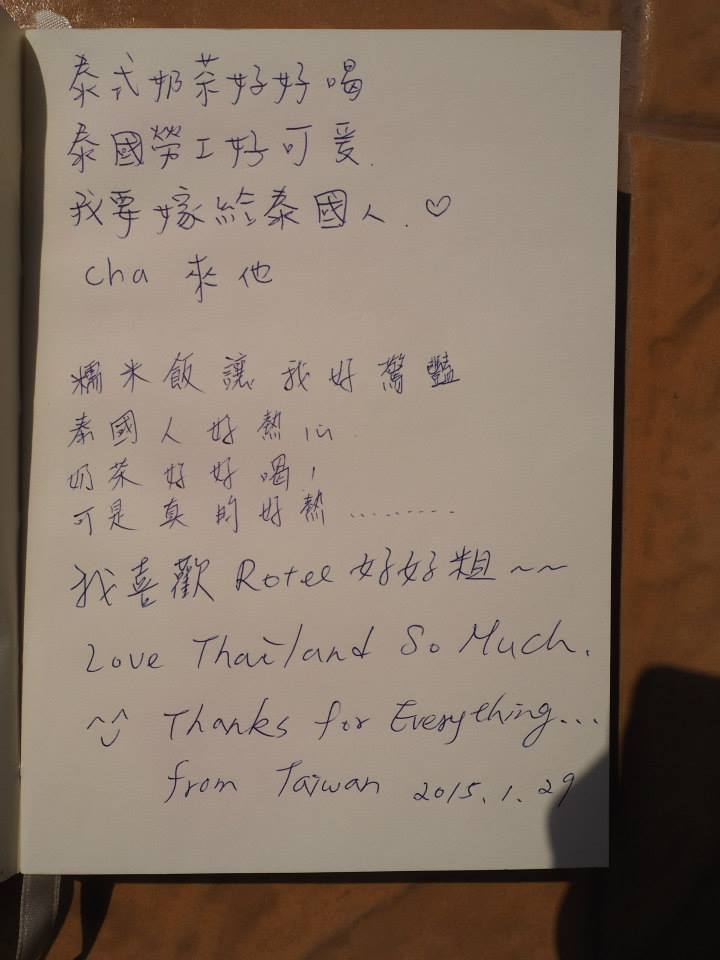 泰式奶茶好好喝
泰國勞工好可爱.
我要嫁給泰國人.♡
cha 來他
糯米飯讓我好驚豔
泰國人好熱心.
奶茶好好喝!
可是真的好熱.........
我喜歡 Rotee 好好粗~~
Love Thailand So Much.
Thanks for Everything...
from Taiwan 2015.1.29